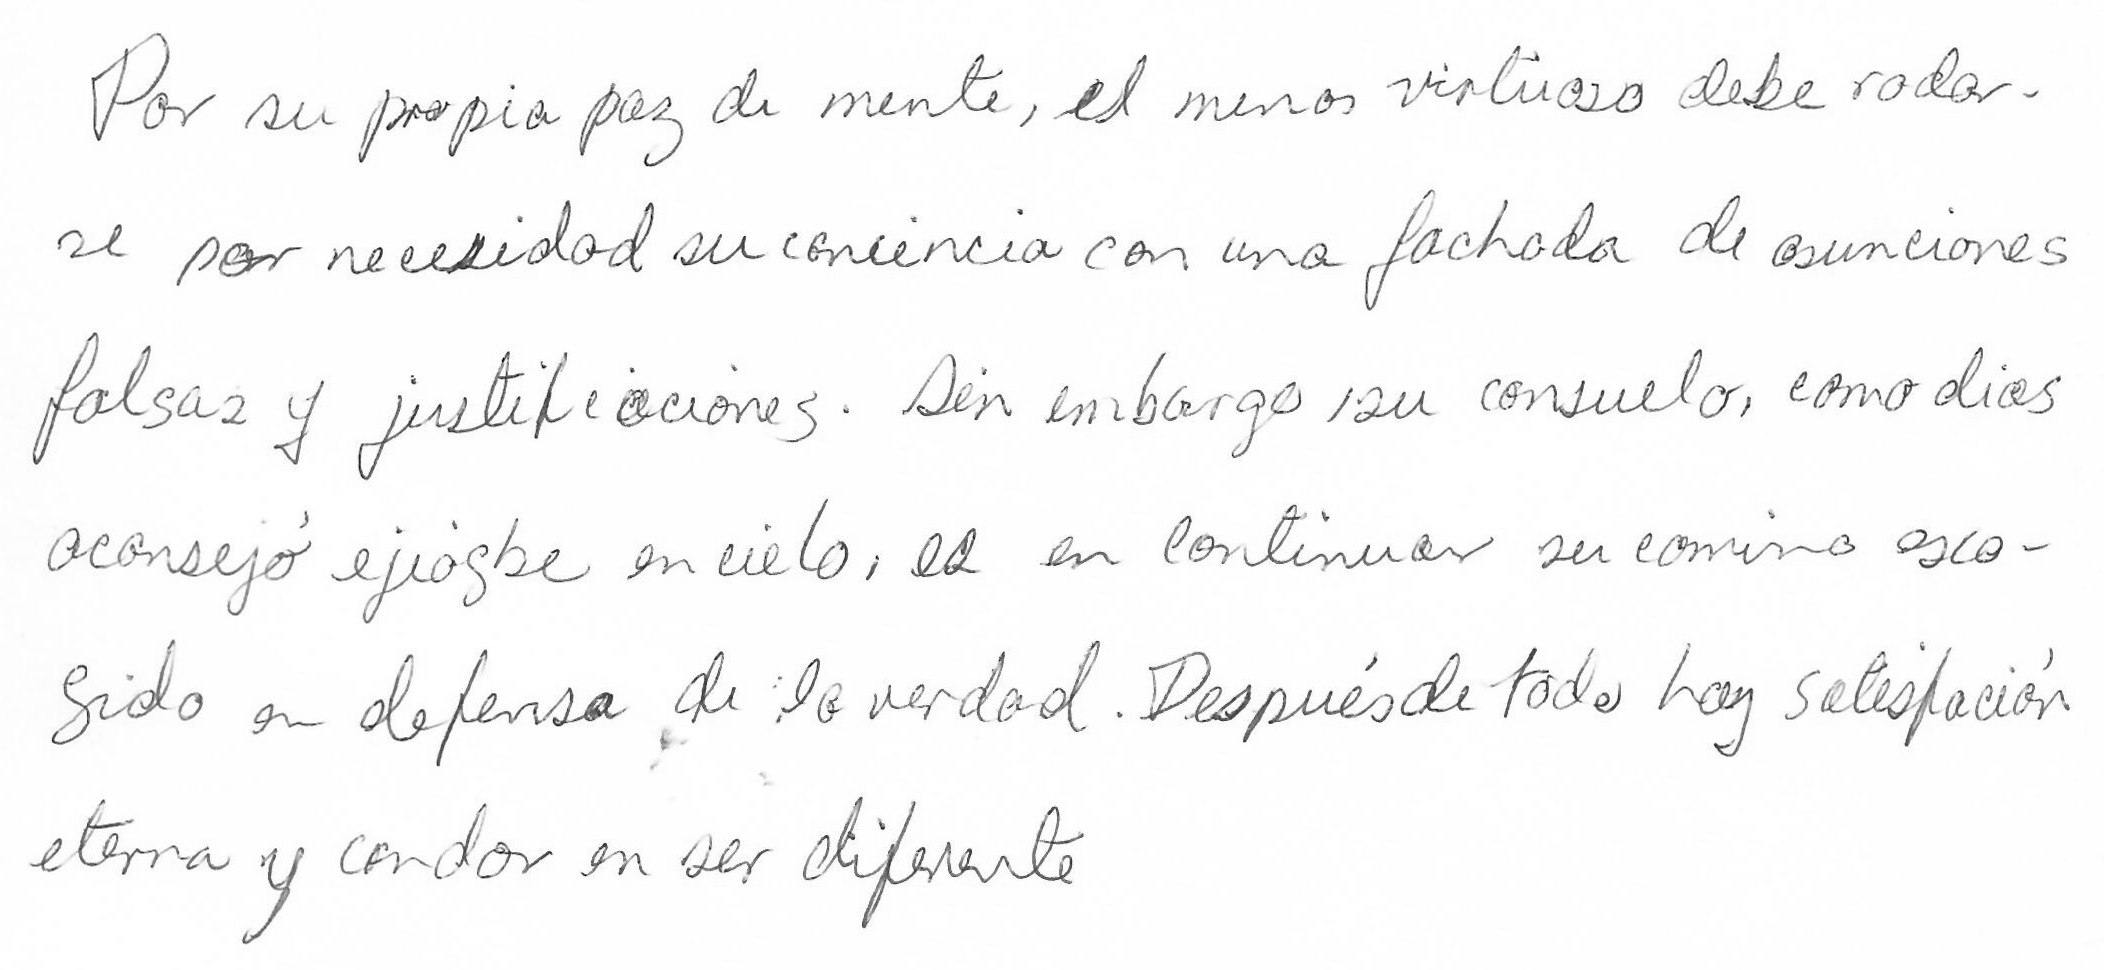 Por su propia paz de mente, el menos virtuoso debe rodar-
se por necesidad su conciencia con una fachada de asunciones
falsas y justificiaciones. Sin embargo, su consuelo, como dios
aconsejó ejiogbe en cielo, es en continuar su camino esco-
gido en defensa de la verdad. Después de todo hay satisfación
eterna y candor en ser diferente